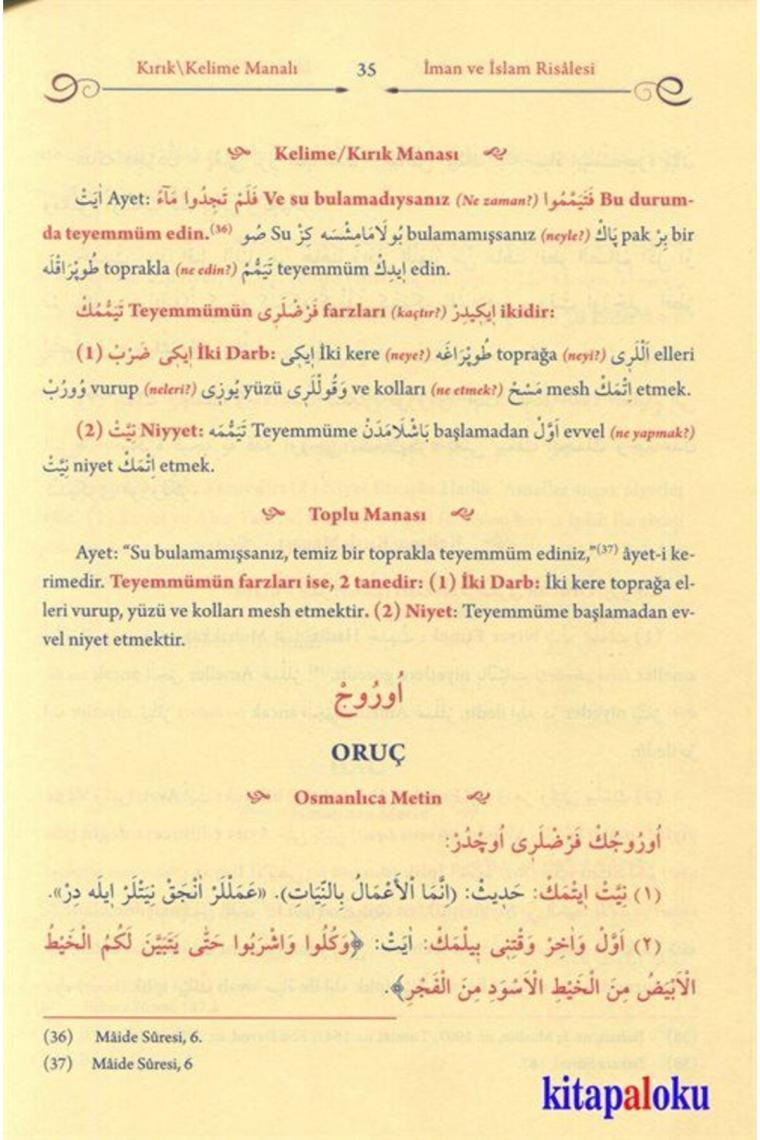 Kırık\Kelime Manalı 35 İman ve İslam Risâlesi
Kelime/Kırık Manası
اٰيَتْ Ayet: فَلَمْ تَجِدُوا مَٓاءً Ve su bulamadıysanız (Ne zaman?) فَتَيَمَّمُوا Bu durum-
da teyemmüm edin.(36) صُو Su بُولَامَامِشْسَه كِزْ bulamamışsanız (neyle?) پَاكْ pak بِرْ bir
طُوپْرَاقْلَه toprakla (ne edin?) تَيَمُّمْ teyemmüm اِيدِكْ edin.
تَيَمُّمُكْ Teyemmümün فَرْضْلَرِى farzları (kaçtır?) اِيكِيدِرْ ikidir:
(1) اِيكِى ضَرْبْ İki Darb: اِيكِى İki kere (neye?) طُوپْرَاغَه toprağa (neyi?) اَلْلَرِى elleri
وُورُبْ vurup (neleri?) يُوزِى yüzü وَقُوللَرِى ve kolları (ne etmek?) مَسْحْ mesh اِتْمَكْ etmek.
(2) نِيَّتْ Niyyet: تَيَمُّمَه Teyemmüme بَاشْلَامَدَنْ başlamadan اَوَّلْ evvel (ne yapmak?)
نِيَّتْ niyet اِتْمَكْ etmek.
Toplu Manası
Ayet: “Su bulamamışsanız, temiz bir toprakla teyemmüm ediniz,”(37) âyet-i ke-
rimedir. Teyemmümün farzları ise, 2 tanedir: (1) İki Darb: İki kere toprağa el-
leri vurup, yüzü ve kolları mesh etmektir. (2) Niyet: Teyemmüme başlamadan ev-
vel niyet etmektir.
اُورُوجْ
ORUÇ
Osmanlıca Metin
اُورُوجُكْ فَرْضْلَرِى اُوچْدُرْ:
(١) نِيَّتْ اِيتْمَكْ: حَدِيثْ: (اِنَّمَا الْاَعْمَالُ بِالنِّيَّاتِ). «عَمَللَرْ اَنْجَقْ نِيَّتْلَرْ اِيلَه دِرْ».
(٢) اَوَّلْ وَاٰخِرْ وَقْتِنِى بِيلْمَكْ: اٰيَتْ: ﴿وَكُلُوا وَاشْرَبُوا حَتّٰى يَتَبَيَّنَ لَكُمُ الْخَيْطُ
الْاَبْيَضُ مِنَ الْخَيْطِ الْاَسْوَدِ مِنَ الْفَجْرِ﴾.
(36) Mâide Sûresi, 6.
(37) Mâide Sûresi, 6
kitapaloku